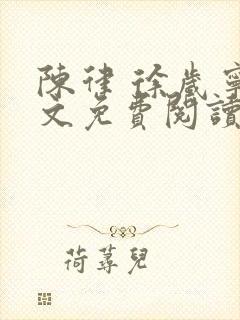 陳律 徐歲寧
文免費閱讀
荷蕁兒